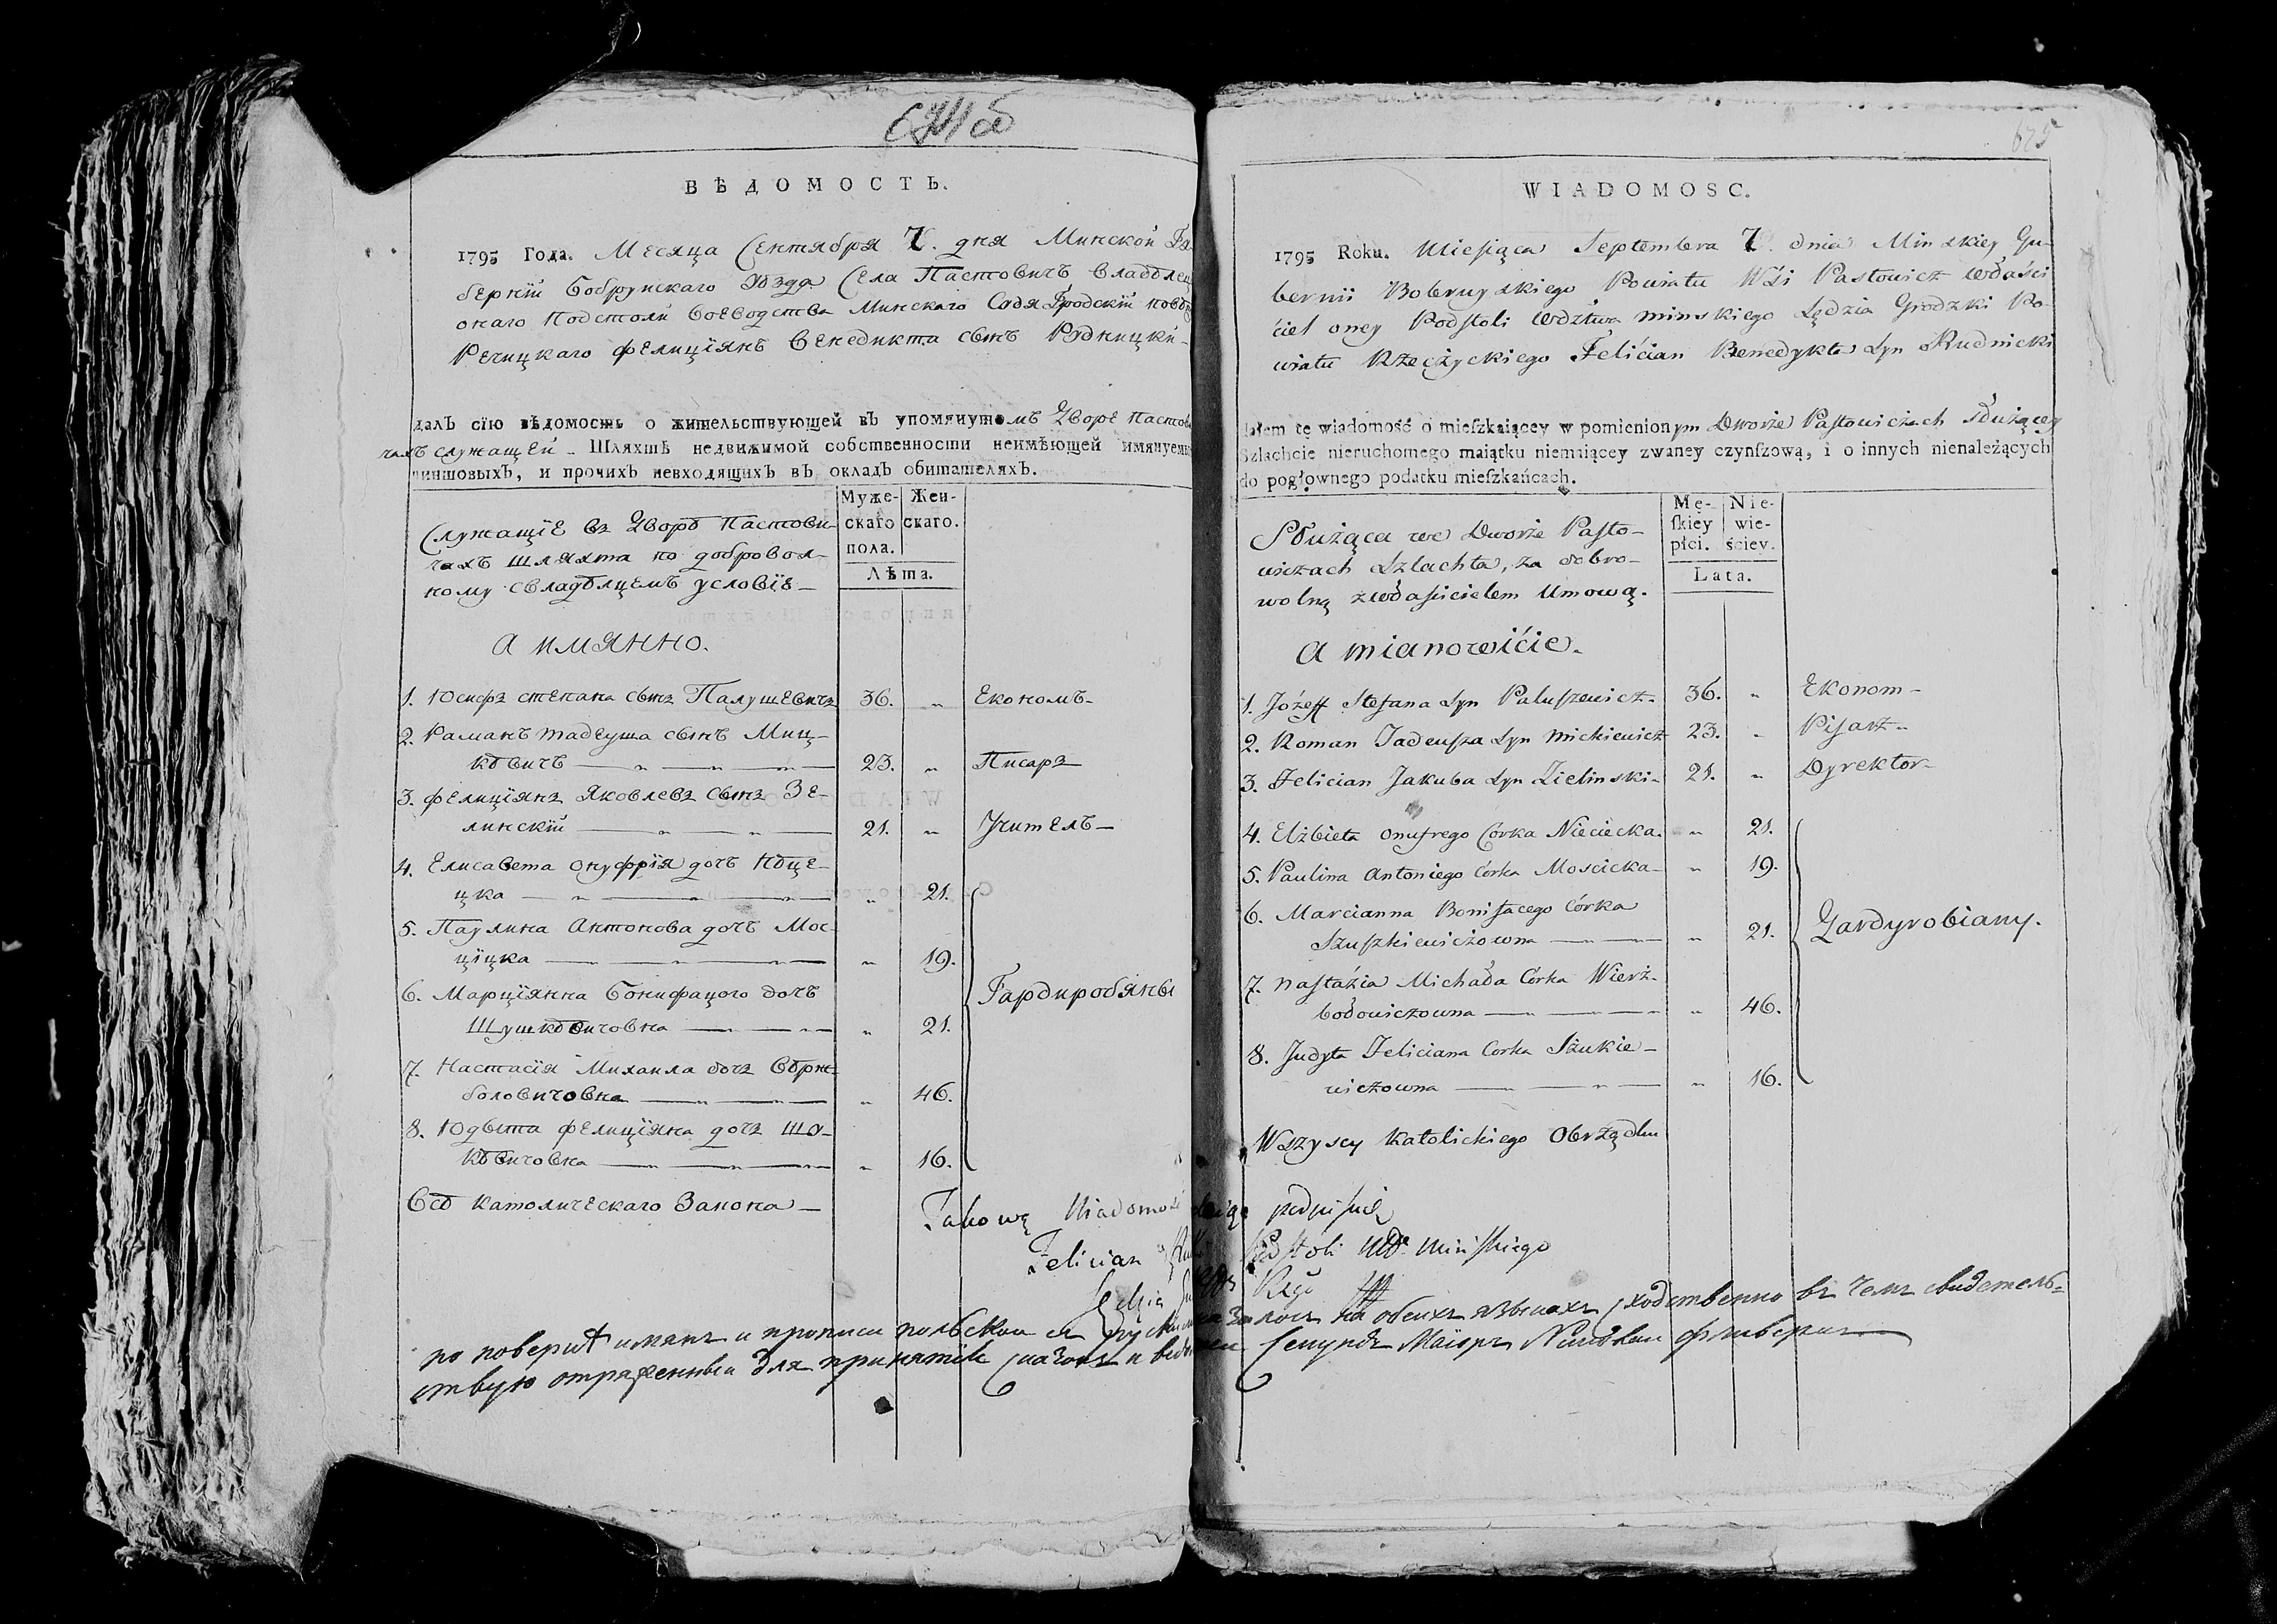 ВѢДОМОСТЬ.
1795 Года. Месяца Сентября 7. дня Минской Гу-
бернїи Бобруйскаго Уѣзда Села Пастовичъ Владѣлец
онаго Подстоли Воеводства Минскаго Судя Гродскїй повѣ
Речицкаго Фелицїянъ Бенедикта сынъ Рудницкй-
далъ сїю вѣдомость о жительствующей въ упомянутомъ Дворе Пастови
чахъ служащей - Шляхтѣ недвижимой собственности неимѣющей имянуемы
чиншовыхъ, и прочихъ невходящихъ въ окладъ обитателяхъ.
Муже-скаго Жен-скаго.
пола.
Лѣта.
Служащїе въ Дворѣ Пастови-
чахъ шляхта по доброволь-
ному свладѣлцемъ условїе-
А имянно.
1. Юсифъ степана сынъ Палушевичъ 36. „ Економъ-
2. Раманъ тадеуша сынъ Миц-
кѣвичъ 23. „ Писаръ
3. Фелицїянъ Яковлевъ сынъ Зе-
линскїй 21. „ Учитель-
4. Елисавета онуфрїя дочь Нѣце-
цка „ 21.
5. Паулина Антонова дочь Мос-
цїцка „ 19.
6. Марцїянна Бонифацого дочь
Шушкѣвичовна „ 21.
Гардиробяны
7. Настасїя Михаила дочь Вѣрж-
боловичовна „ 46.
8. Юдыта Фелицїяна дочь Шу-
кѣвичовна „ 16.
Всѣ католическаго Закона-
675
WIADOMOSC.
1795 Roku. Miesiąca Septembra 7. dnia Minskiey Gu-
bernii Bobruyskiego Powiatu Wśi Pastowicz właści
ciel oney Podstoli Wdztwa minskiego Sędzia Grodzki Po-
wiatu Rzeczyckiego Felician Benedykta Syn Rudnicki
dałem tę wiadomość o mieszkaiącey w pomienionym Dworze Pastowiczach służącey
Szlachcie nieruchomego maiątku niemaiącey zwaney czynszową, i o innych nienależących
do pogłownego podatku mieszkańcach.
Mę-skiey płci. Nie-wie-ściey.
Lata.
Służąca we Dworze Pasto-
wiczach Szlachta, za dobro-
wolną zwłaścicielem Umową.
A mianowićie.
1. Józeff Stefana Syn Paluszewicz- 36. „ Ekonom-
2. Roman Tadeusza Syn Mickiewicz 23. „ Pisarz-
3. Felician Jakuba Syn Zielinski- 21. „ Dyrektor-
4. Elżbieta Onufrego Córka Nieciecka. „ 21.
5. Paulina Antoniego Córka Moscicka- „ 19.
6. Marcianna Bonifacego Córka
Szuszkiewiczowna „ 21.
Gardyrobiany.
7. Nastazia Michała Córka Wierz-
bołowiczowna „ 46.
8. Judyta Feliciana Corka Szukie-
wiczowna „ 16.
Wszyscy Katolickiego Obrządku
Takową Wiadomość podpisuię
Felician Podstoli Minskiego
Sędzia
по поверкѣ имянъ и прописи польскои на обеихъ языкахъ сходственно въ чемъ свидетель-
ствую отряженный для принятїя сказокъ Секундъ Маїоръ